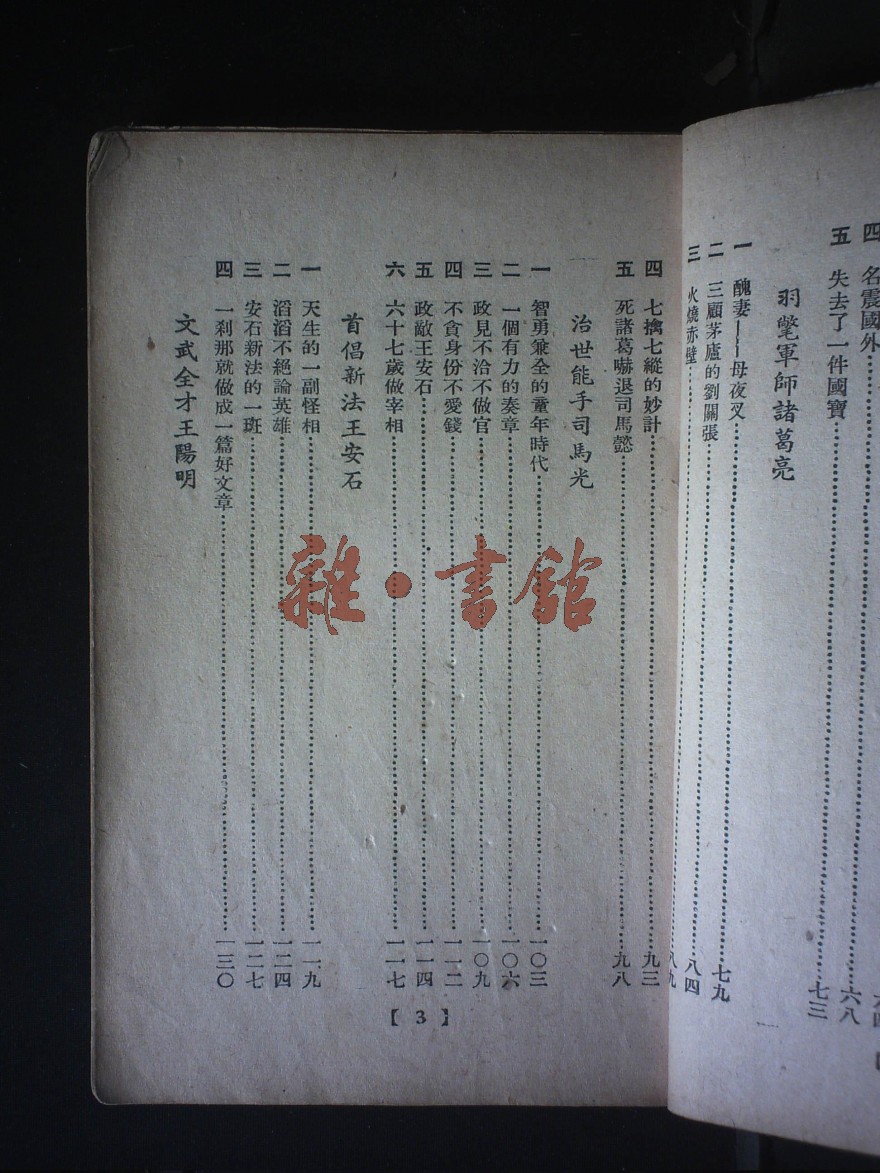 四 名震國外……六八
五 失去了一件國寶……七三
羽氅軍師諸葛亮
一 醜妻——母夜叉……七九
二 三顧茅廬的劉關張……八四
三 火燒赤壁……八九
四 七擒七縱的妙計……九三
五 死諸葛嚇退司馬懿……九八
治世能手司馬光
一 智勇兼全的童年時代……一〇三
二 一個有力的奏章……一〇六
三 政見不洽不做官……一〇九
四 不貪身份不愛錢……一一二
五 政敵王安石……一一四
六 六十七歲做宰相……一一七
首倡新法王安石
一 天生的一副怪相……一一九
二 滔滔不絕論英雄……一二四
三 安石新法的一班……一二七
四 一剎那就做成一篇好文章……一三〇
文武全才王陽明
【3】
雜·書館